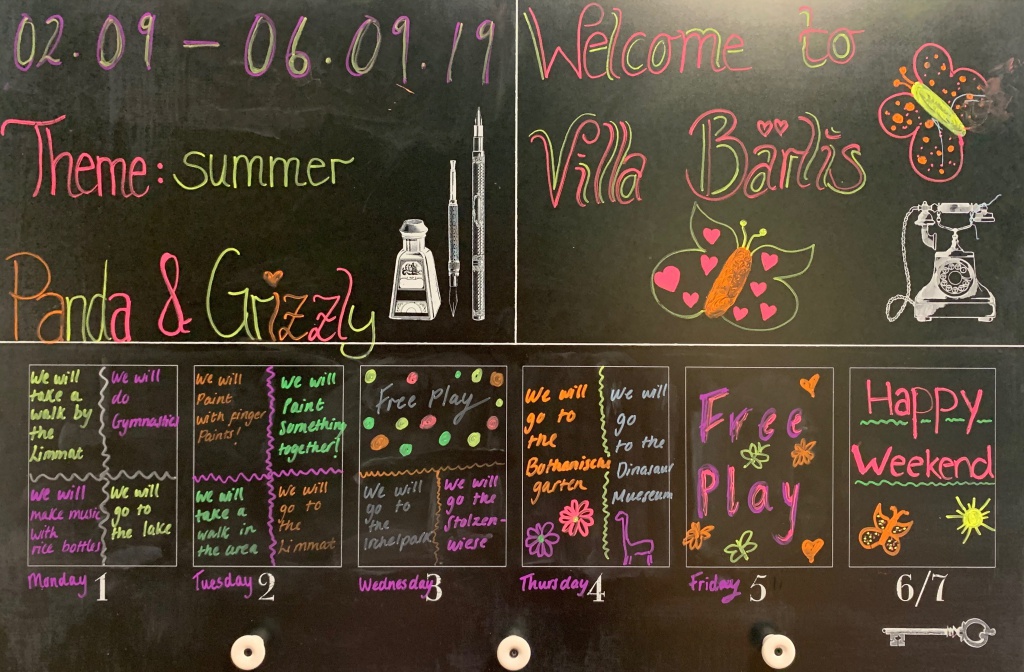 02.09 – 06.09.19
Theme: summer
Panda & Grizzly
Welcome to
Villa Bärlis
We will
take a
walk by
the
Limmat
We will
do
Gymnastics
We will
make music
with
rice bottles
We will
go to
the lake
Monday 1
We will
Paint
with finger
Paints!
We will
Paint
something
together!
We will
take a
walk in
the area
We will
go to
the
Limmat
Tuesday 2
Free Play
We will
go to
the
Irchelpark
We will
go the
Stolzen-
wiese
Wednesday 3
We will
go to
the
Bothanische
garten
We will
go
to the
Dinasaur
Muereum
Thursday 4
Free
Play
Friday 5
Happy
Weekend
6/7